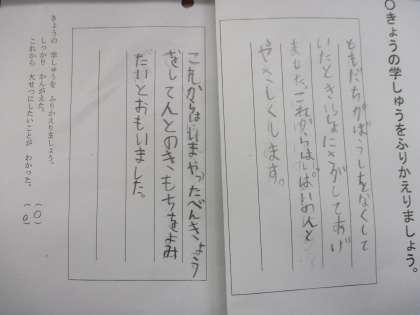 ○きょうの学しゅうをふりかえりましょう。
ともだちがぼうしをなくして
いたときいっしょにさがしてあげ
ました。これからは
やさしくします。
きょうの学しゅうを ふりかえりましょう。
しっかり かんがえた。 (○)
これから 大せつにしたいことが わかった。 (○)
これからはいまやったべんきょう
をして
のきもちをよみ
たいとおもいました。